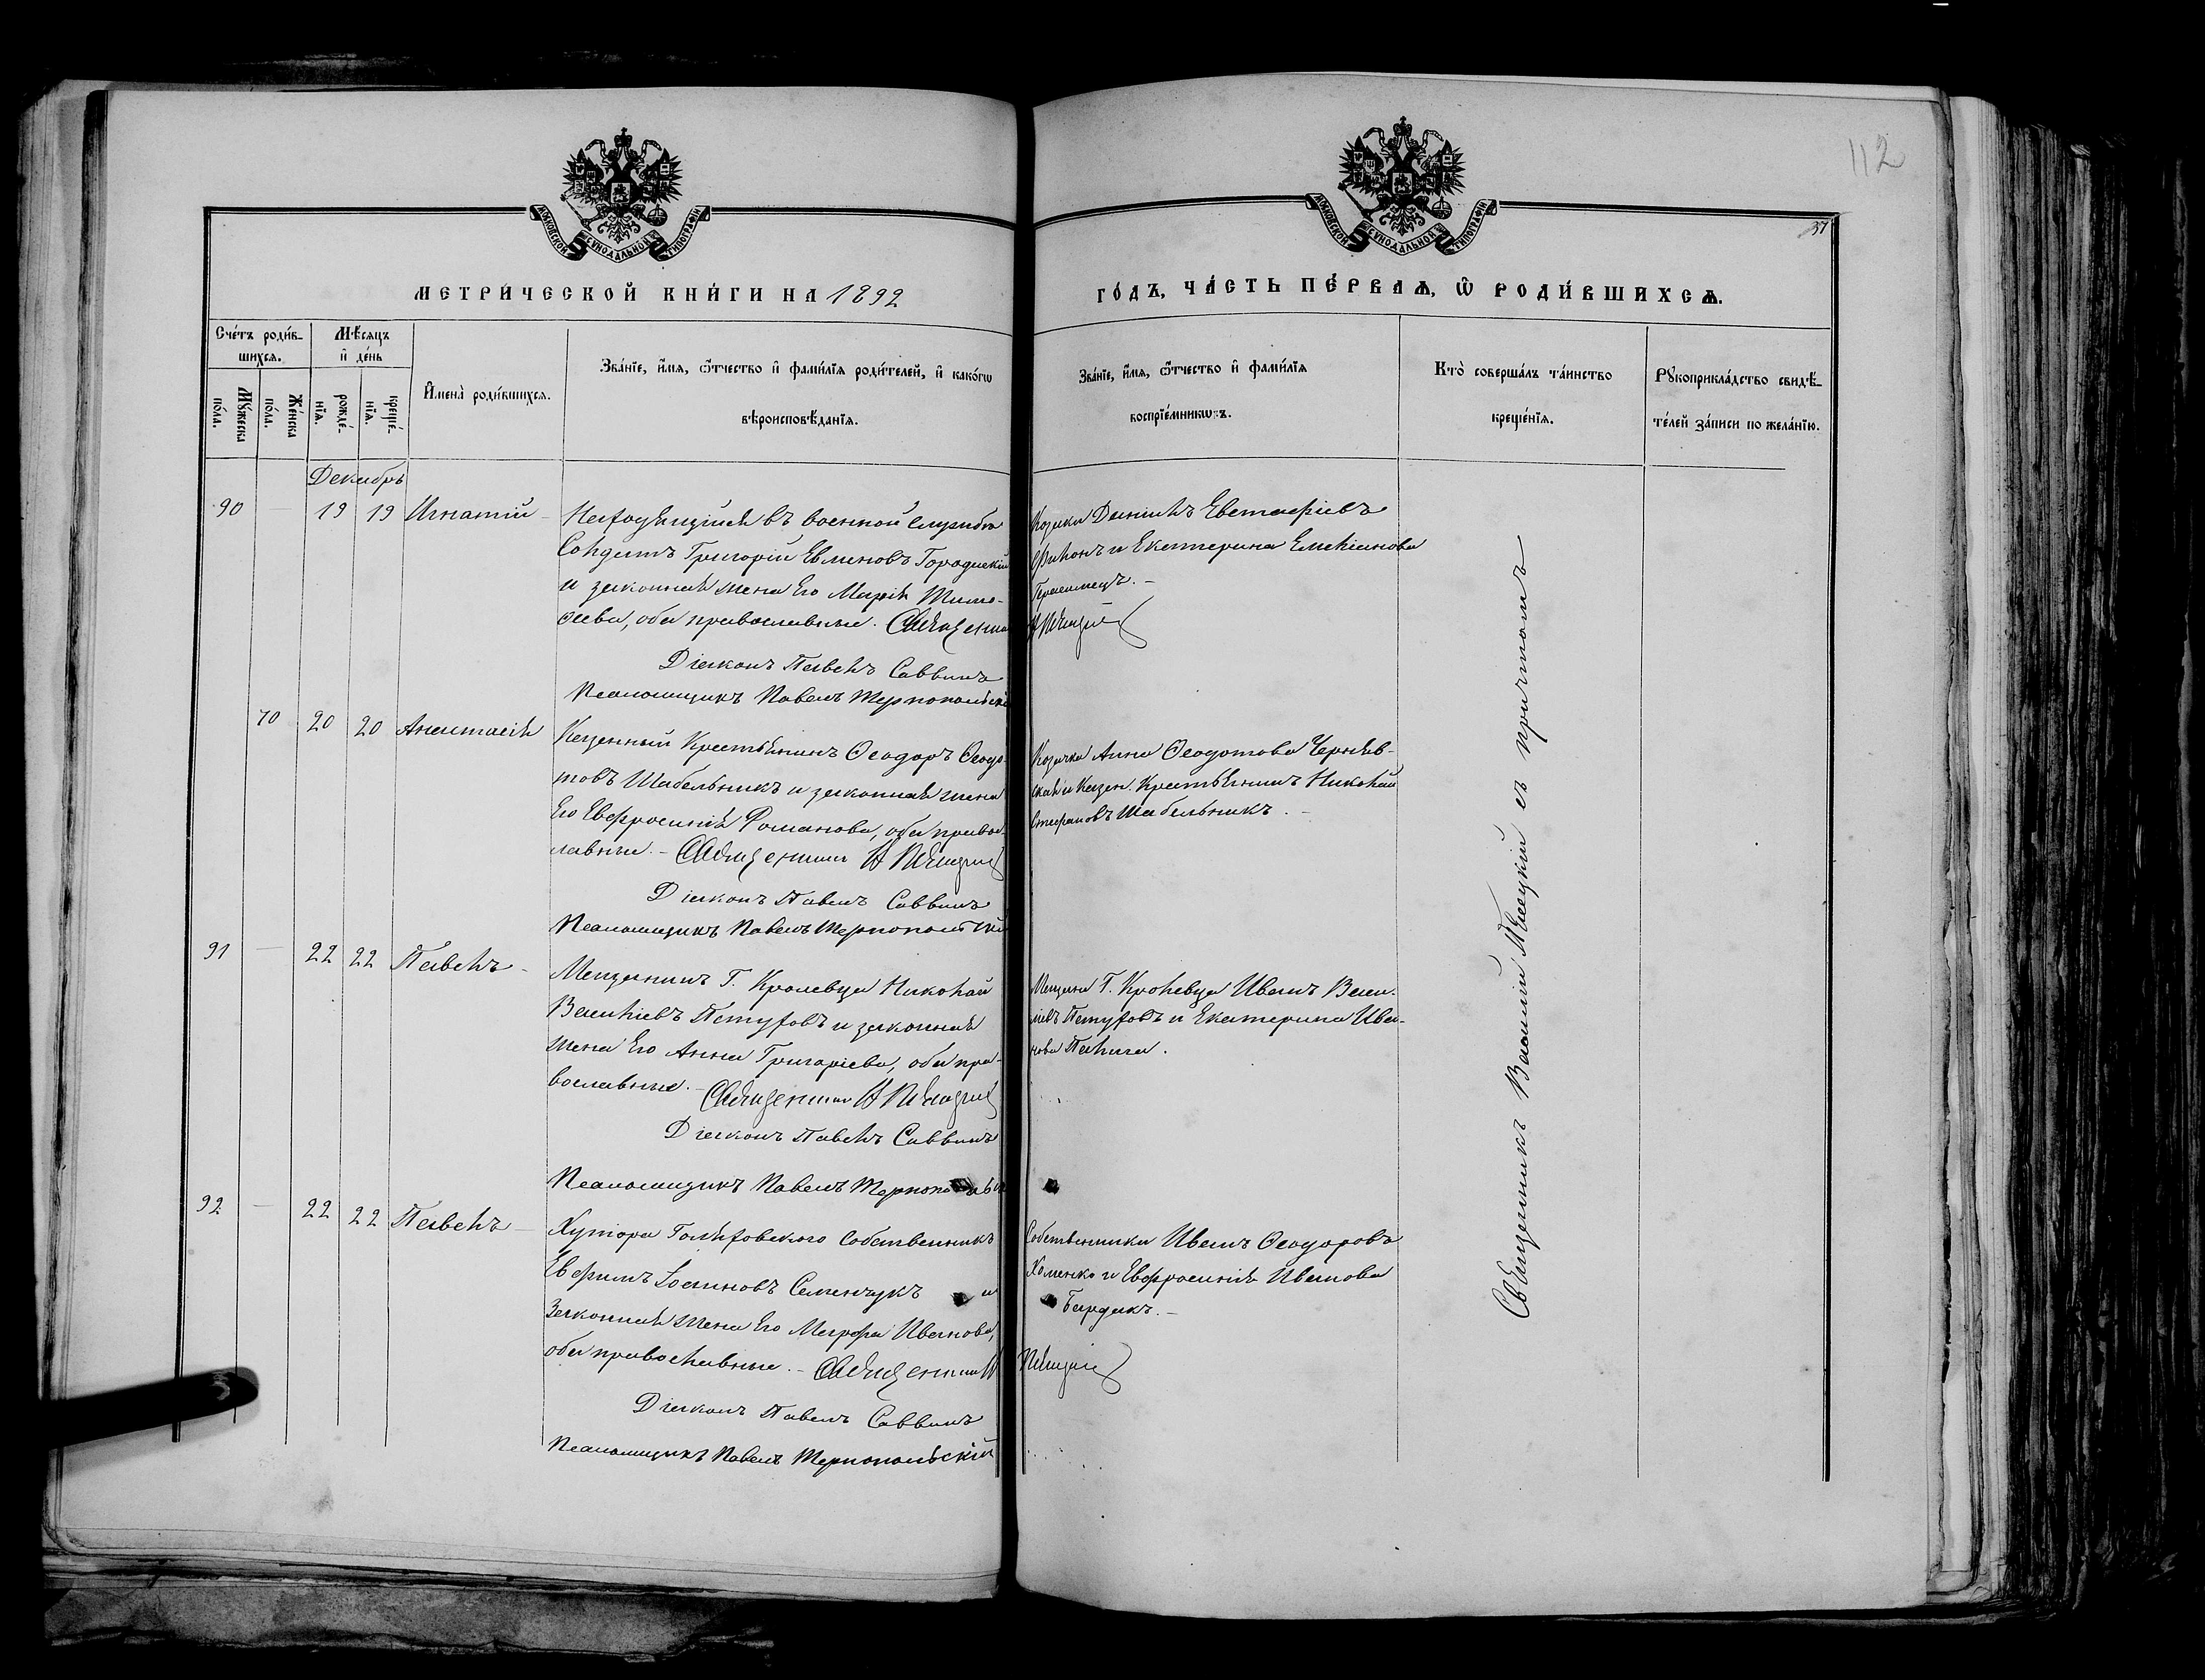 112
37
МОСКОВСКОЙ СУНОДАЛЬНОЙ ТИПОГРАФІИ
МОСКОВСКОЙ СУНОДАЛЬНОЙ ТИПОГРАФІИ
МЕТРИ́ЧЕСКОЙ КНИ́ГИ НА 1892
ГО́ДЪ, ЧА́СТЬ ПЕ́РВАѦ, Ѡ҆ РОДИ́ВШИХСѦ.
Сче́тъ роди́в-
шихсѧ.
Мꙋ́жеска
по́ла.
Же́нска
по́ла.
Мѣ́сѧцъ
и҆ де́нь
рожде́-
нїѧ.
креще́-
нїѧ.
И҆мена̀ роди́вшихсѧ.
Зва́нїе, и҆́мѧ, ѻ҆́тчество и҆ фами́лїѧ роди́телей, и҆ како́гѡ
вѣроисповѣ́данїѧ.
Зва́нїе, и҆́мѧ, ѻ҆́тчество и҆ фами́лїѧ
воспрїе́мникѡвъ.
Кто̀ соверша́лъ та́инство
креще́нїѧ.
Рꙋкоприкла́дство свидѣ́-
телей за́писи по жела́нїю.
Декабрь
90 19 19 Игнатій -
Находящійся въ военной службѣ
Солдатъ Григорій Евменовъ Городискій
и законная жена Его Марія Тимо-
ѳеева, оба православные. Священникъ
Діаконъ Павелъ Саввинъ
Псаломщикъ Павелъ Тернопольскій
Козаки Даніилъ Евстафіевъ
и Екатерина Емельянова
70 20 20 Анастасія
Казенный Крестьянинъ Ѳеодоръ Ѳеодо-
товъ Шабельникъ и законная жена
Его Евфросинія Романова, оба право-
лавные. - Священникъ
Діаконъ Павелъ Саввинъ
Псаломщикъ Павелъ Тернопольскій
Козачка Анна Ѳеодотова Черняв-
ская и Казен. Крестьянинъ Николай
Стефановъ Шабельникъ. -
91 — 22 22 Павелъ -
Мещанинъ Г. Кролевца Николай
Василіевъ Петуховъ и законная
жена Его Анна Григоріева, оба пра-
вославные. - Священникъ
Діаконъ Павелъ Саввинъ
Псаломщикъ Павелъ
Мещане Г. Кролевца Иванъ Васи-
ліевъ Петуховъ и Екатерина Ива-
нова
92 — 22 22 Павелъ -
Хутора Голяховского Собственникъ
Евфимъ Іоанновъ Семенчукъ и
Законная жена Его Марфа Иванова,
оба православные. - Священникъ
Діаконъ Павелъ Саввинъ
Псаломщикъ Павелъ Тернопольскій
Собственники Иванъ Ѳеодоровъ
Хоменко и Евфросинія Иванова
Бардакъ. -
Священникъ Василій съ причтомъ